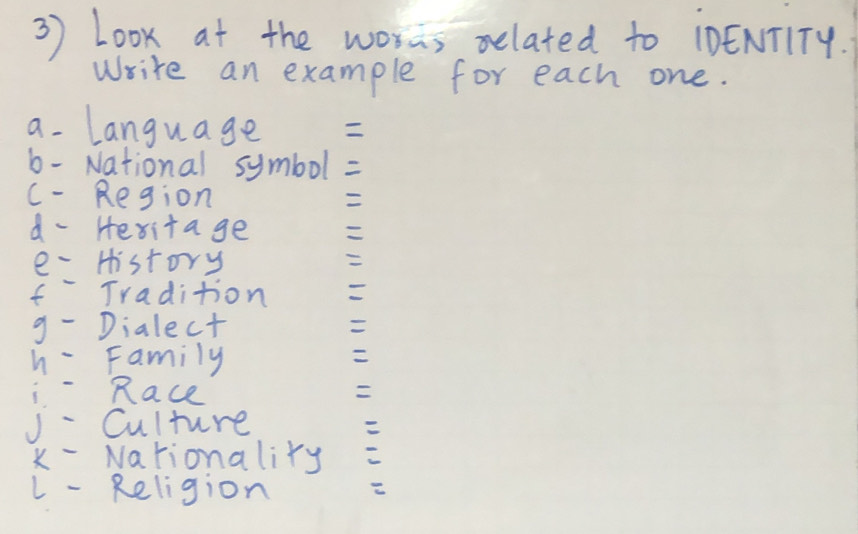 3) Look at the words related to IDENTITY.
Write an example for each one.
a- Language =
b- National symbol =
c- Region =
d- Heritage =
e- History =
f- Tradition =
g- Dialect =
h- Family =
i- Race =
j- Culture =
k- Nationality =
l- Religion =